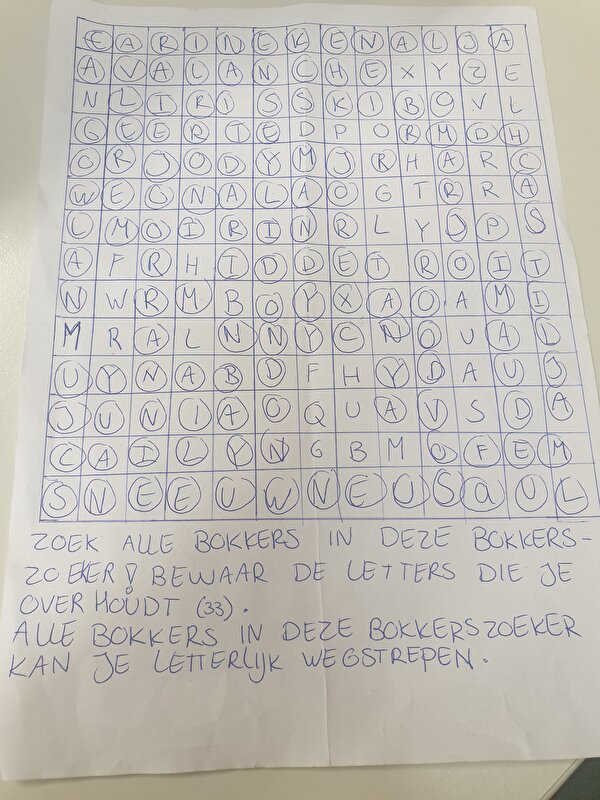 E A R I N E K E N A L J A
A V A L A N C H E X Y Z E
N L I R I S S K I B O V L
G E E R T E D P O R M D H
O R J O D Y M J R H A R C
W E O N A L A O G T R R A
L M O I R I N R L Y O P S
A F R H I D D E T R O I T
N W R M B O Y X A O A M I
M R A L N N Y C N O U A D
U Y N A B D F H Y D A U J
J U N I A O Q U A V S D A
C A I L Y N G B M U F E M
S N E E U W N E U S Q U L
ZOEK ALLE BOKKERS IN DEZE BOKKERS-
ZOEKER! BEWAAR DE LETTERS DIE JE
OVERHOUDT (33).
ALLE BOKKERS IN DEZE BOKKERSZOEKER
KAN JE LETTERLIJK WEGSTREPEN.